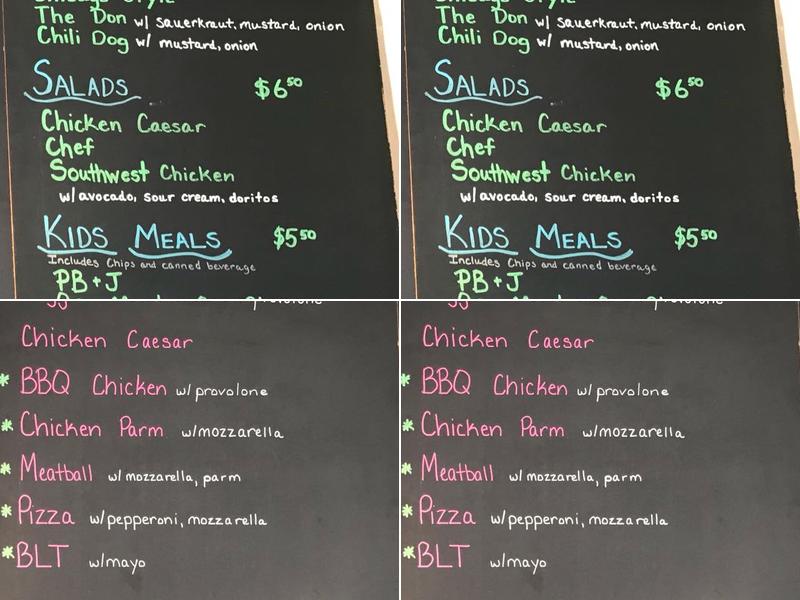 The Don w/ sauerkraut, mustard, onion
Chili Dog w/ mustard, onion
SALADS $6⁵⁰
Chicken Caesar
Chef
Southwest Chicken
w/avocado, sour cream, doritos
KIDS MEALS $5⁵⁰
Includes Chips and canned beverage
PB + J
The Don w/ sauerkraut, mustard, onion
Chili Dog w/ mustard, onion
SALADS $6⁵⁰
Chicken Caesar
Chef
Southwest Chicken
w/avocado, sour cream, doritos
KIDS MEALS $5⁵⁰
Includes Chips and canned beverage
PB + J
Chicken Caesar
* BBQ Chicken w/provolone
* Chicken Parm w/mozzarella
* Meatball w/mozzarella, parm
* Pizza w/pepperoni, mozzarella
* BLT w/mayo
Chicken Caesar
* BBQ Chicken w/provolone
* Chicken Parm w/mozzarella
* Meatball w/mozzarella, parm
* Pizza w/pepperoni, mozzarella
* BLT w/mayo